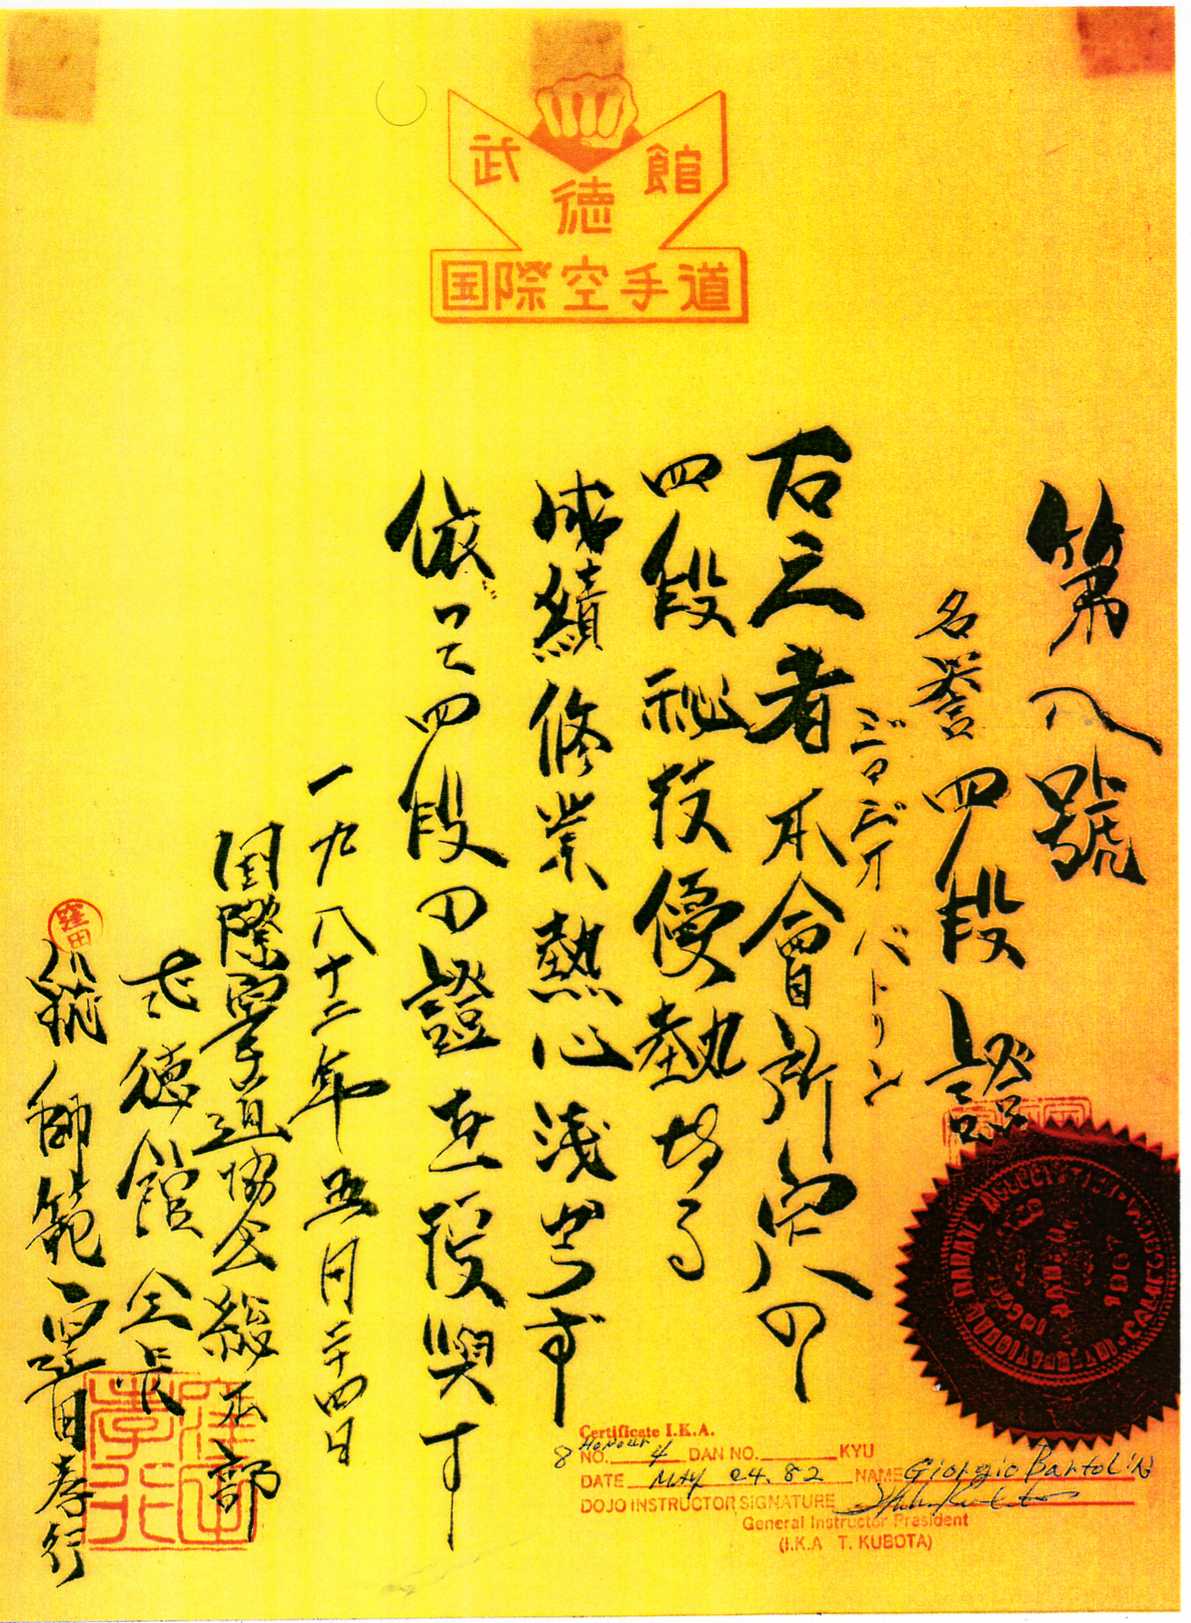 武徳館
国際空手道
第八號
名誉四段證
ジョジオ バトリン
右之者本會所定八の
四段秘技優
成績修業熱心浅
依って四段の證 授與す
一九八十二年五月二十四日
国際空手道協会総本部
武徳館会長
師範 窪田孝行
窪田
窪田孝行
Certificate I.K.A.
8 Honour
NO. 4 DAN NO. KYU
DATE MAY 24. 82 NAME Giorgio Bartolin
DOJO INSTRUCTOR SIGNATURE
General Instructor President
(I.K.A T. KUBOTA)